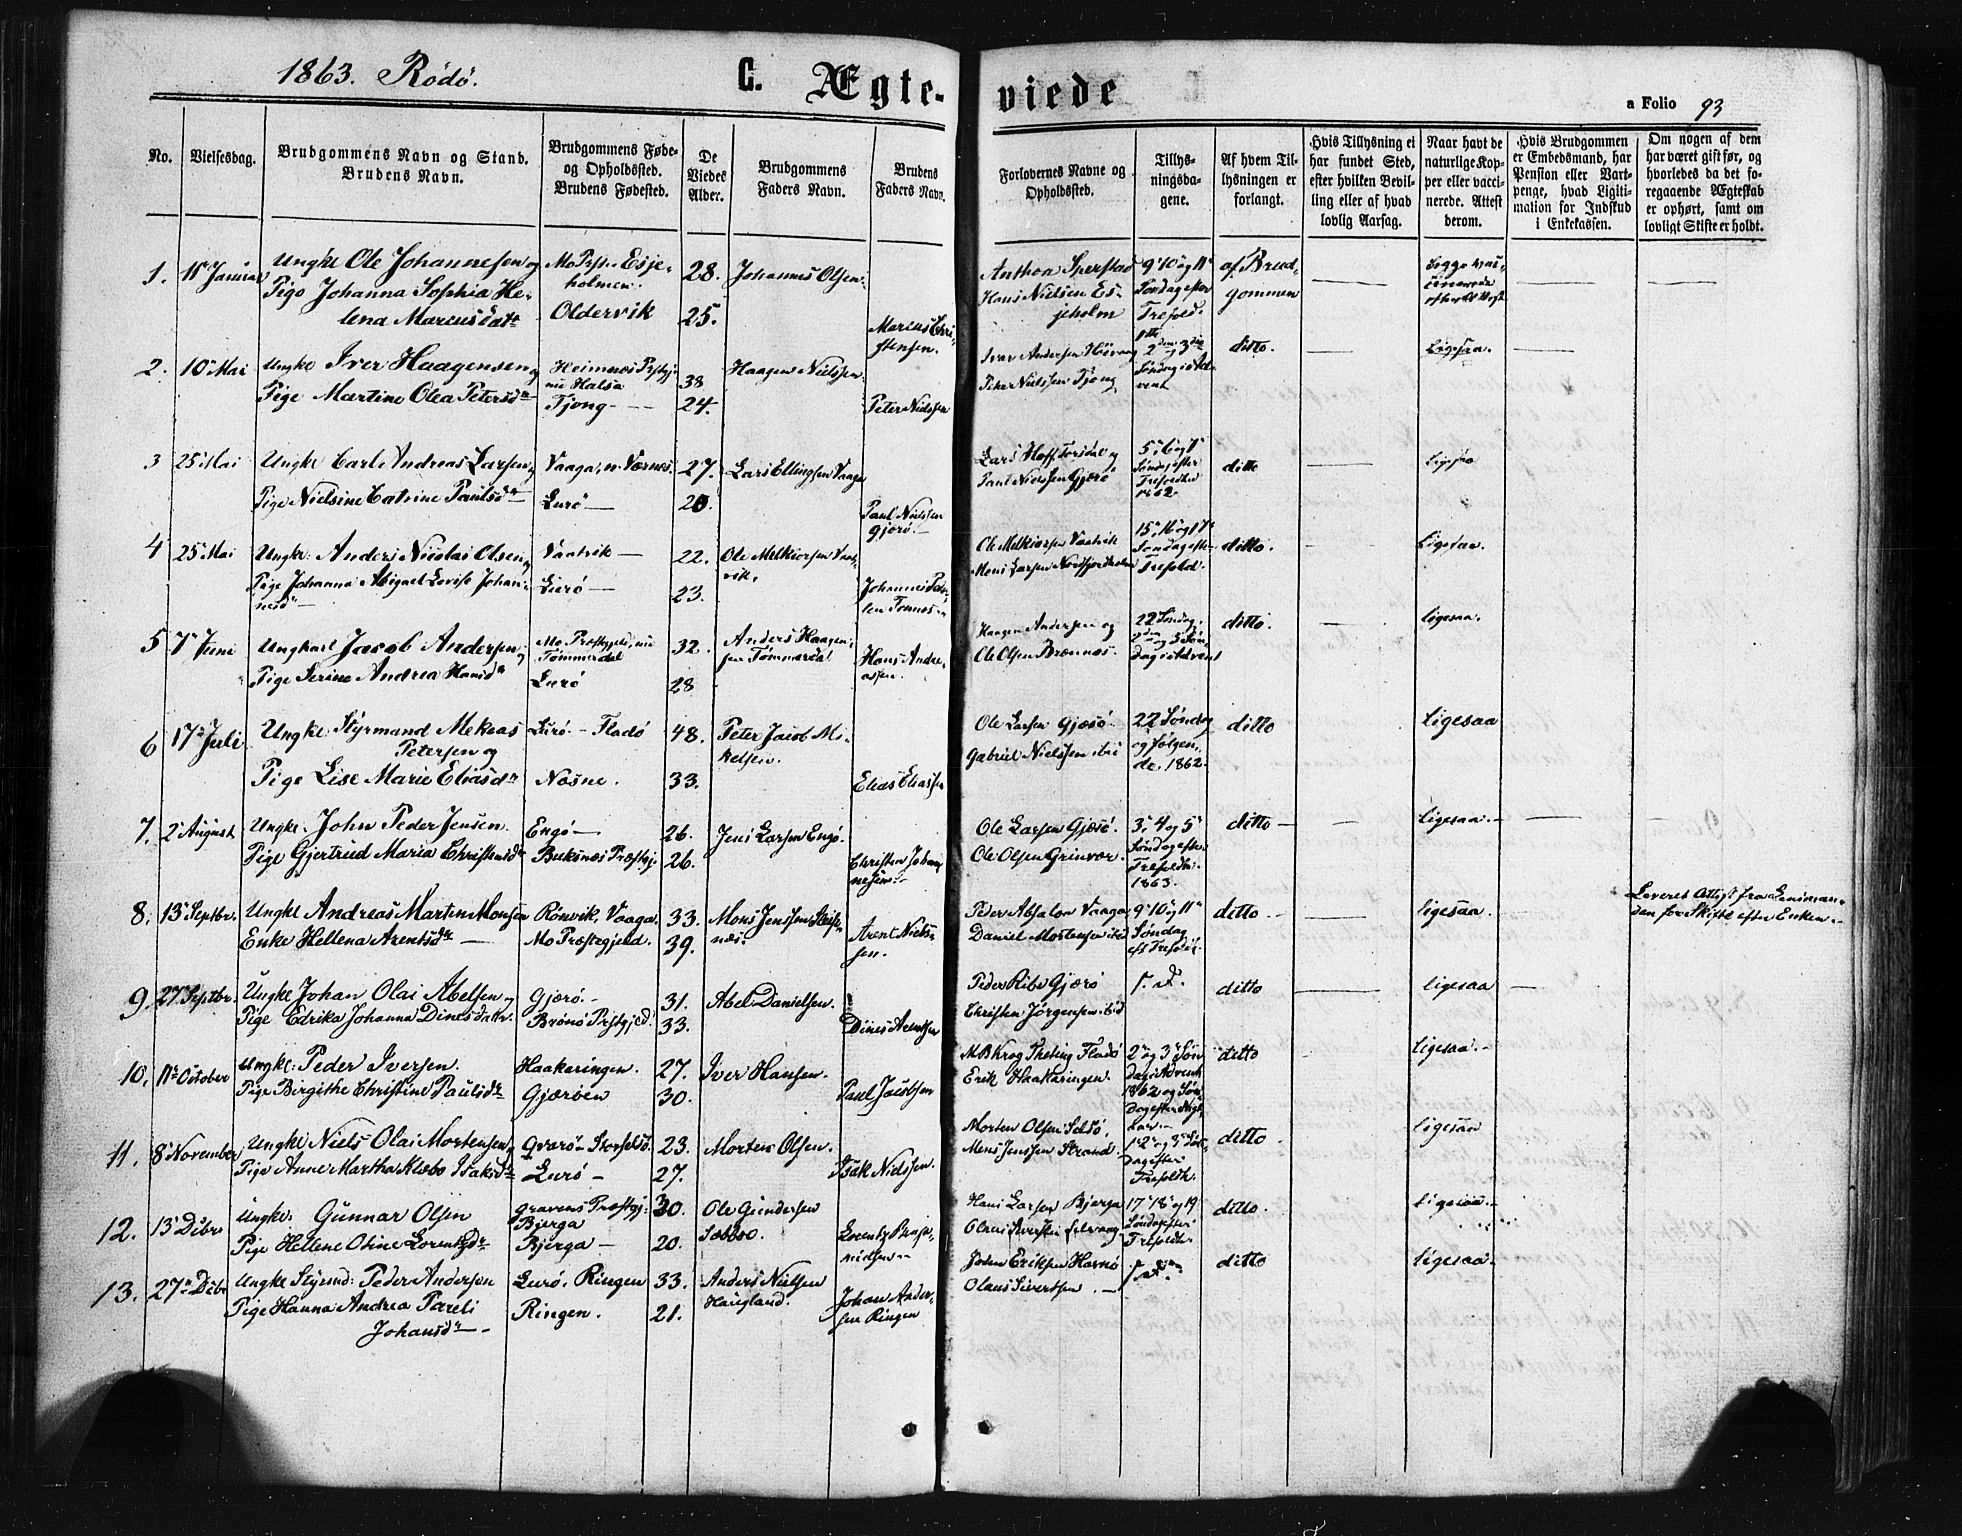 1863. Rödö.
C. Ægte-
viede
a Folio 93
No.
Vielsesdag.
Brudgommens Navn og Stand.
Brudens Navn.
Brudgommens Føde-
og Opholdssted.
Brudens Fødested.
De
Viedes
Alder.
Brudgommens
Faders Navn.
Brudens
Faders Navn.
Forlovernes Navne og
Opholdssted.
Tillys-
ningsda-
gene.
Af hvem Til-
lysningen er
forlangt.
Hvis Tillysning ei
har fundet Sted,
efter hvilken Bevil-
ling eller af hvad
lovlig Aarsag.
Naar havt de
naturlige Kop-
per eller vacci-
nerede. Attest
derom.
Hvis Brudgommen
er Embedsmand, har
Pension eller Vart-
penge, hvad Ligiti-
mation for Indskud
i Enkekassen.
Om nogen af dem
har været gift før, og
hvorledes da det fo-
regaaende Ægteskab
er ophørt, samt om
lovligt Skifte er holdt.
1. 11 Januar
Ungke Ole Johannesen og
Pige Johanna Sophia He-
lena Marcusdatr
Mo Pr. Esje-
holmen.
Oldervik
28.
25.
Johannes Olsen.
Marcus Chri-
stensen.
Anthon Sperstad
Hans Nielsen Es-
jeholm
9 10 og 11
Søndag efter
Trefold.
af Brud-
gommen
begge vac-
cinerede
2. 10 Mai
Ungke Iver Haagensen og
Pige Martine Olea Petersdr
Heimnæs Prstgj.
nu Halsa
Tjong
38
24.
Haagen Nielsen.
Peter Nielssen
Iver Andersen
Peter Nielssen Tjong
2den og 3die
Søndag i Ad-
vent
ditto.
Ligesaa.
3 25 Mai
Ungke Carl Andreas Larsen og
Pige Nielsine Catrine Paulsdr
Vaaga, n. Værnes.
Lurö
27.
20.
Lars Ellingsen Vaaga
Paul Nielssen
Gjærö.
Lars Hoff Torsdal og
Paul Nielssen Gjærö
5, 6 og 7
Søndag efter
Trefoldh
1862.
ditto
Ligesaa
4 25 Mai
Ungke: Anders Nicolai Olsen og
Pige Johanna Abigael Lovise Johan-
nesdr
Vaatvik
Lurö
22.
23.
Ole Melkiorsen Vaat-
vik.
Johannes Peter-
sen Tonnes
Ole Melkiorsen Vaatvik
Mons Larsen Nordfjordholm
15, 16 og 17
Søndag eft.
Trefold.
ditto.
Ligesaa.
5 7 Juni
Ungkarl Jacob Andersen og
Pige Serine Andrea Hansdr
Mo Præstegjeld, nu
Tømmerdal
Lurö
32.
28
Anders Haagen-
sen Tømmerdal
Hans Andre-
assen.
Haagen Andersen og
Ole Olsen Brænnæs.
22 Søndag,
2den og 3 Søn-
dag i Advent
ditto.
ligesaa.
6 17 Juli
Ungke Styrmand Mekeas
Petersen og
Pige Lise Marie Eliasdr
Lurö - Fladö
Næsne.
48.
33.
Peter Jacob Mi-
kelsen.
Elias Eliassen
Ole Larsen Gjæsö
Gabriel Nielssen ibi
22 Søndag
og følgen-
de. 1862.
ditto
Ligesaa
7. 2 August
Ungke: John Peder Jensen.
Pige Gjertrud Maria Christensdr
Engö
Buksnæs Præstgj.
26.
26.
Jens Larsen Engö.
Christen Johan-
nesen.
Ole Larsen Gjæsö.
Ole Olsen Grinvær.
3, 4 og 5
Søndag eft.
Trefoldh.
1863.
ditto
ligesaa.
8. 13 Septbr.
Ungke Andreas Martin Monsen
Enke Hellena Arentsdr
Rönvik, Vaaga.
Mo Præstegjeld.
33.
39.
Mons Jenssen
næs.
Arent Niels-
sen.
Peder Absalon Vaaga
Daniel Mortensen ibid
9 10 og 11
Søndag
eft Trefold.
ditto
ligesaa.
Leveret Attest fra Lensman-
den for Skifte efter Enken.
9. 27 Septbr.
Ungke Johan Olai Abelsen og
Pige Edrika Johanna Dinesdatr.
Gjærö.
Brönö Prstgjed
31.
33.
Abel Danielsen.
Dines Arentsen
Peder Ribe Gjærö
Christen Jørgensen ibid
ditto
ligesaa
10. 11 October
Ungke: Peder Iversen.
Pige Birgithe Christine Paulsdr
Haakaringen.
Gjærøen
27.
30.
Iver Hansen.
Paul Jacobsen
M B Krog Fladö
Erik Haakaringen.
2 og 3 Søn-
dag i Advent
1862 og Søn-
dag efter Nyt-
aar.
ditto
ligesaa.
11. 8 November
Ungke Niels Olai Mortensen,
Pige Anne Martha Klæbo Isaksdr
Qvarö
Lurö
23.
27.
Morten Olsen.
Isak Nielssen.
Morten Olsen Selsö.
Mons Jenssen Strand.
1 2 og 3 Søn-
dag efter
Trefoldh.
ditto
ligesaa
12. 13 Dcbr
Ungke: Gunnar Olsen
Pige Hellene Otine Lorentsdr
Gravens Præstgj.
Bjerga
Bjerga
30.
20.
Ole Gundersen
Sæbbö.
Lorents
Hans Larsen Bjerga
Olaus Sivertsen Selvaag
17 18 og 19
Søndag efter
Trefoldh.
ditto.
Ligesaa.
13. 27 Dcbr
Ungke Styrmd: Peder Andersen
Pige Hanna Andrea Pareli
Johansdr
Lurö. Ringen
Ringen.
33.
21.
Anders Nielsen
Haugland.
Johan Ander-
sen Ringen
Eriksen Havnö
Olaus Sivertsen.
ditto
ligesaa.